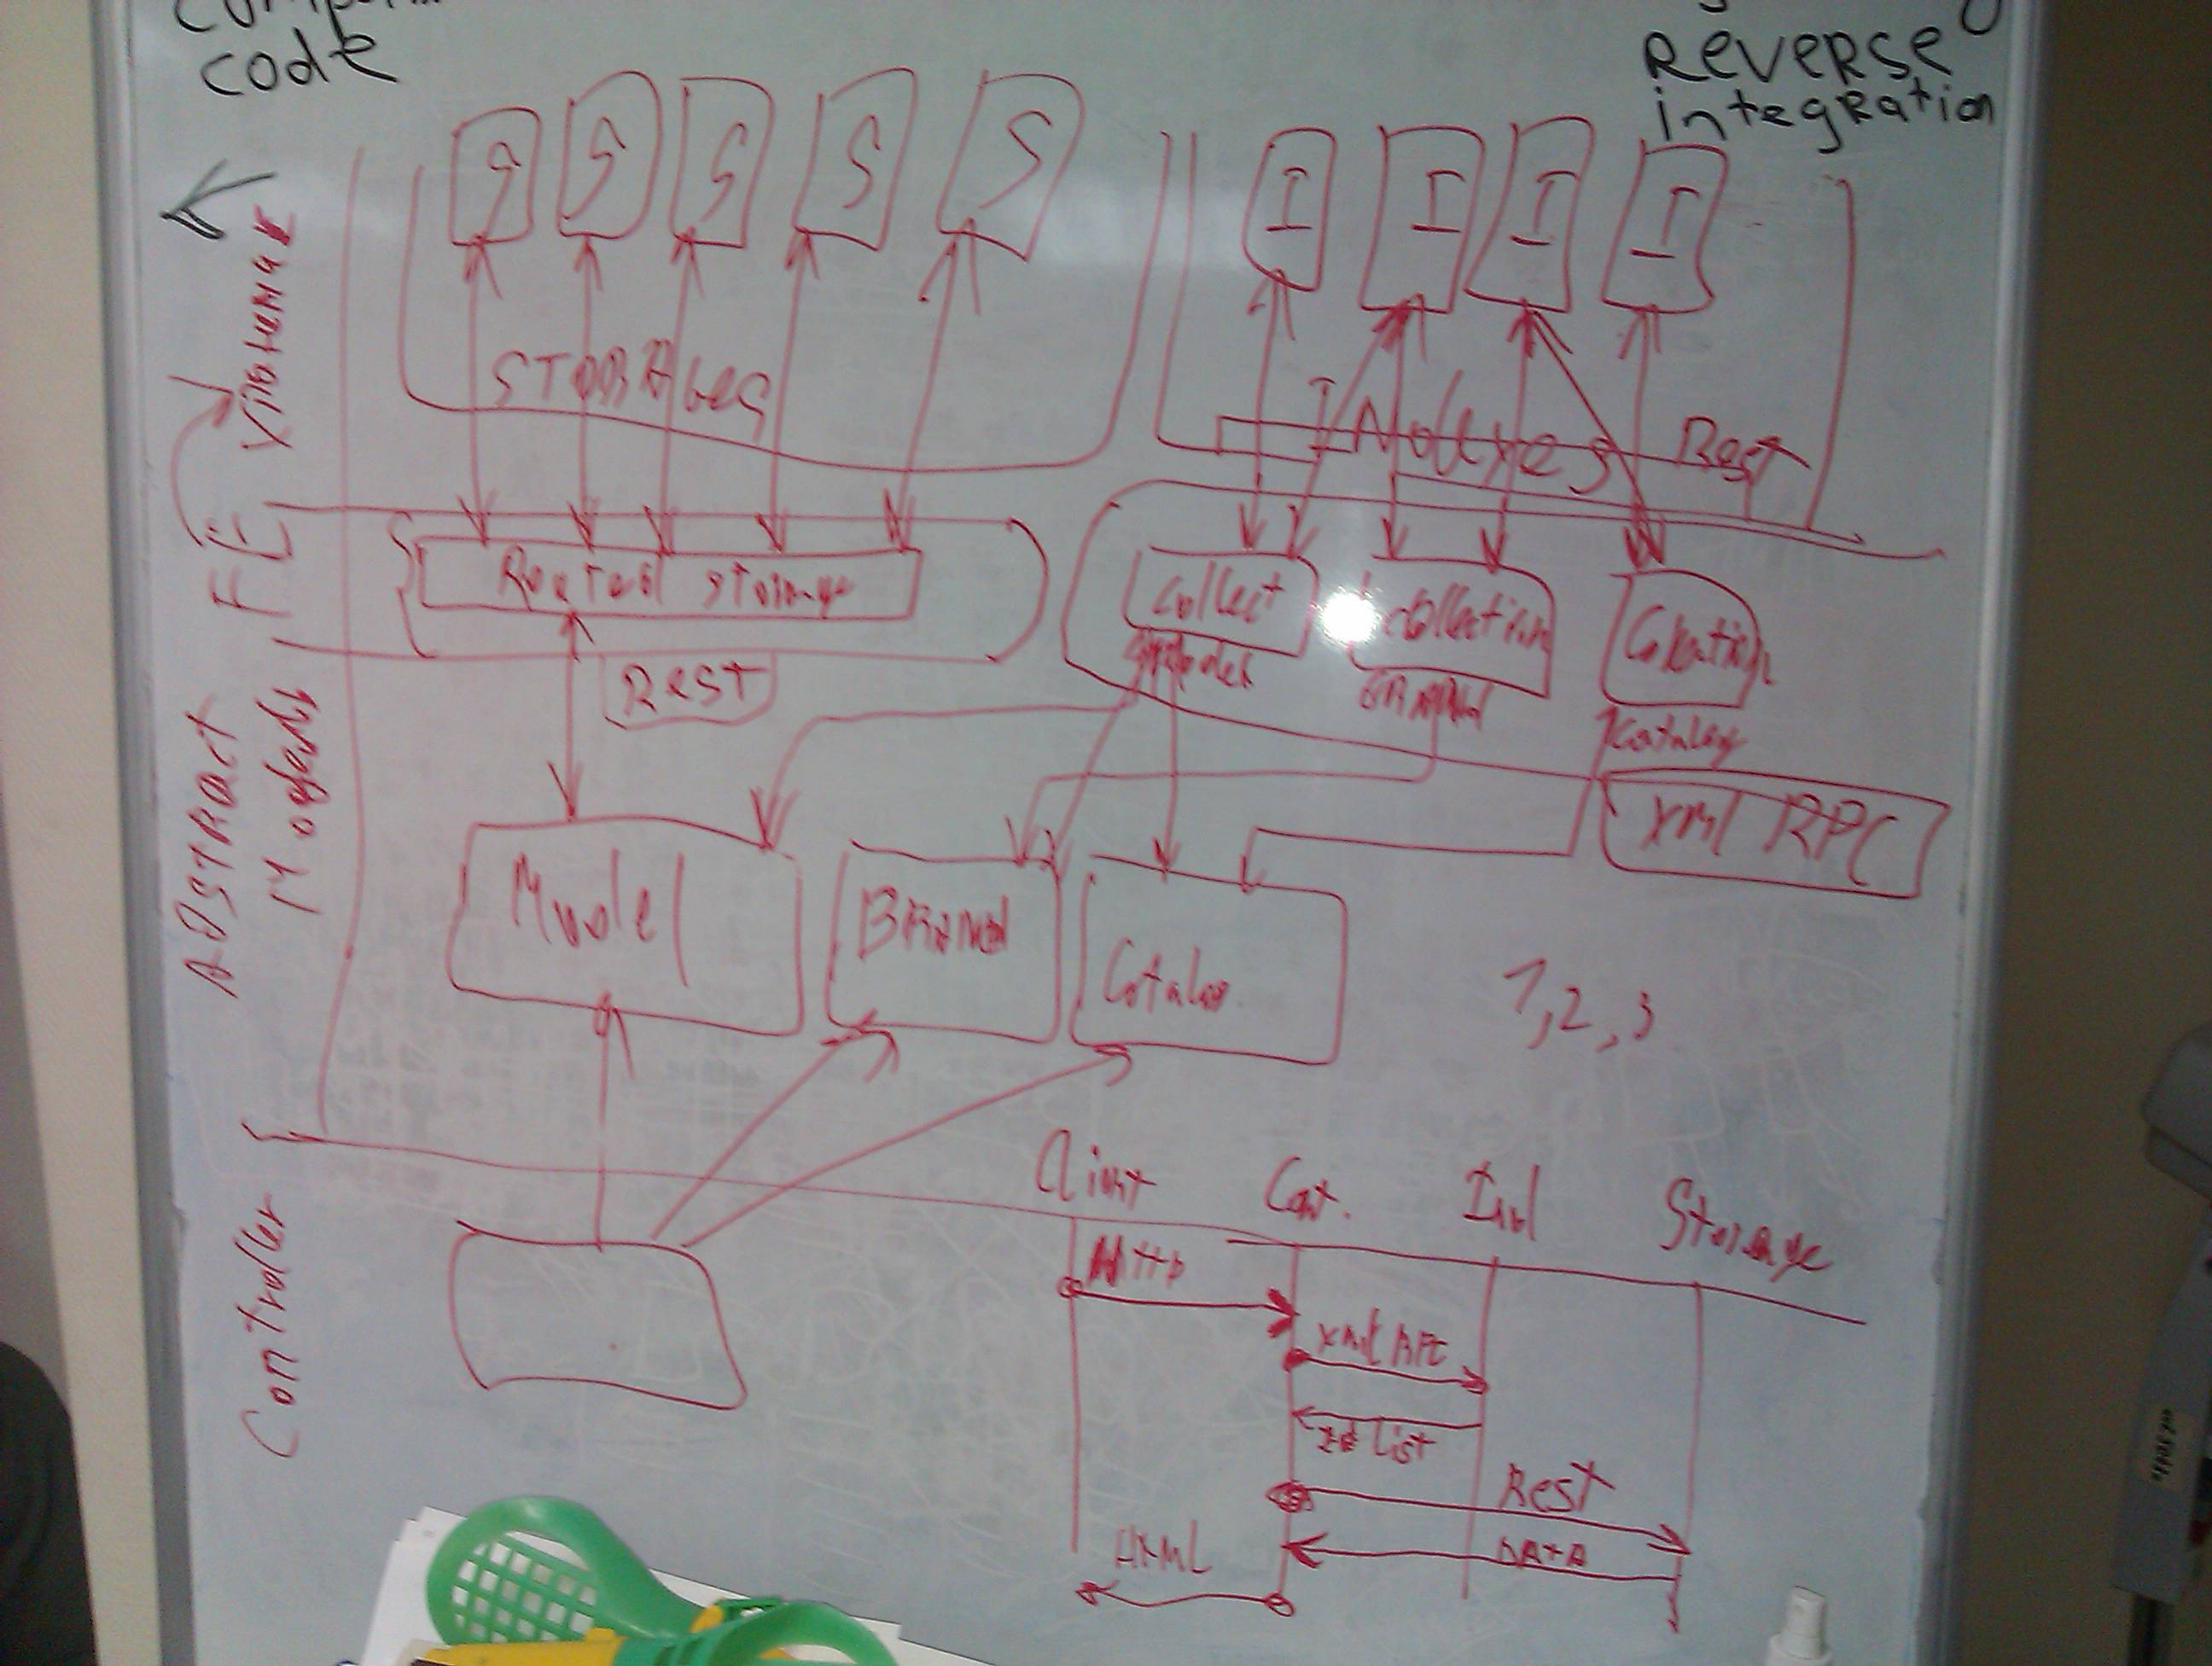 code
REVERSE
integRation
S
S
S
S
S
I
I
I
I
STORAges
INdexes
Rest
FE
Router storage
REST
collect
model
collection
BRAND
Catalog
xml RPC
ABSTRACT
Models
Model
BRAND
Catalog
1,2,3
Controller
Client
Cont.
Ind
Storage
Http
xml RPC
Id List
Rest
DATA
HTML